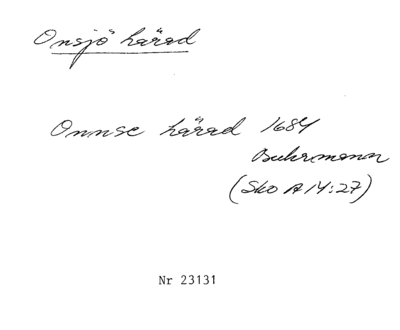 Onsjö härad
Onnse härad 1684
Buhrmann
(Sko A 14:27)
Nr 23131